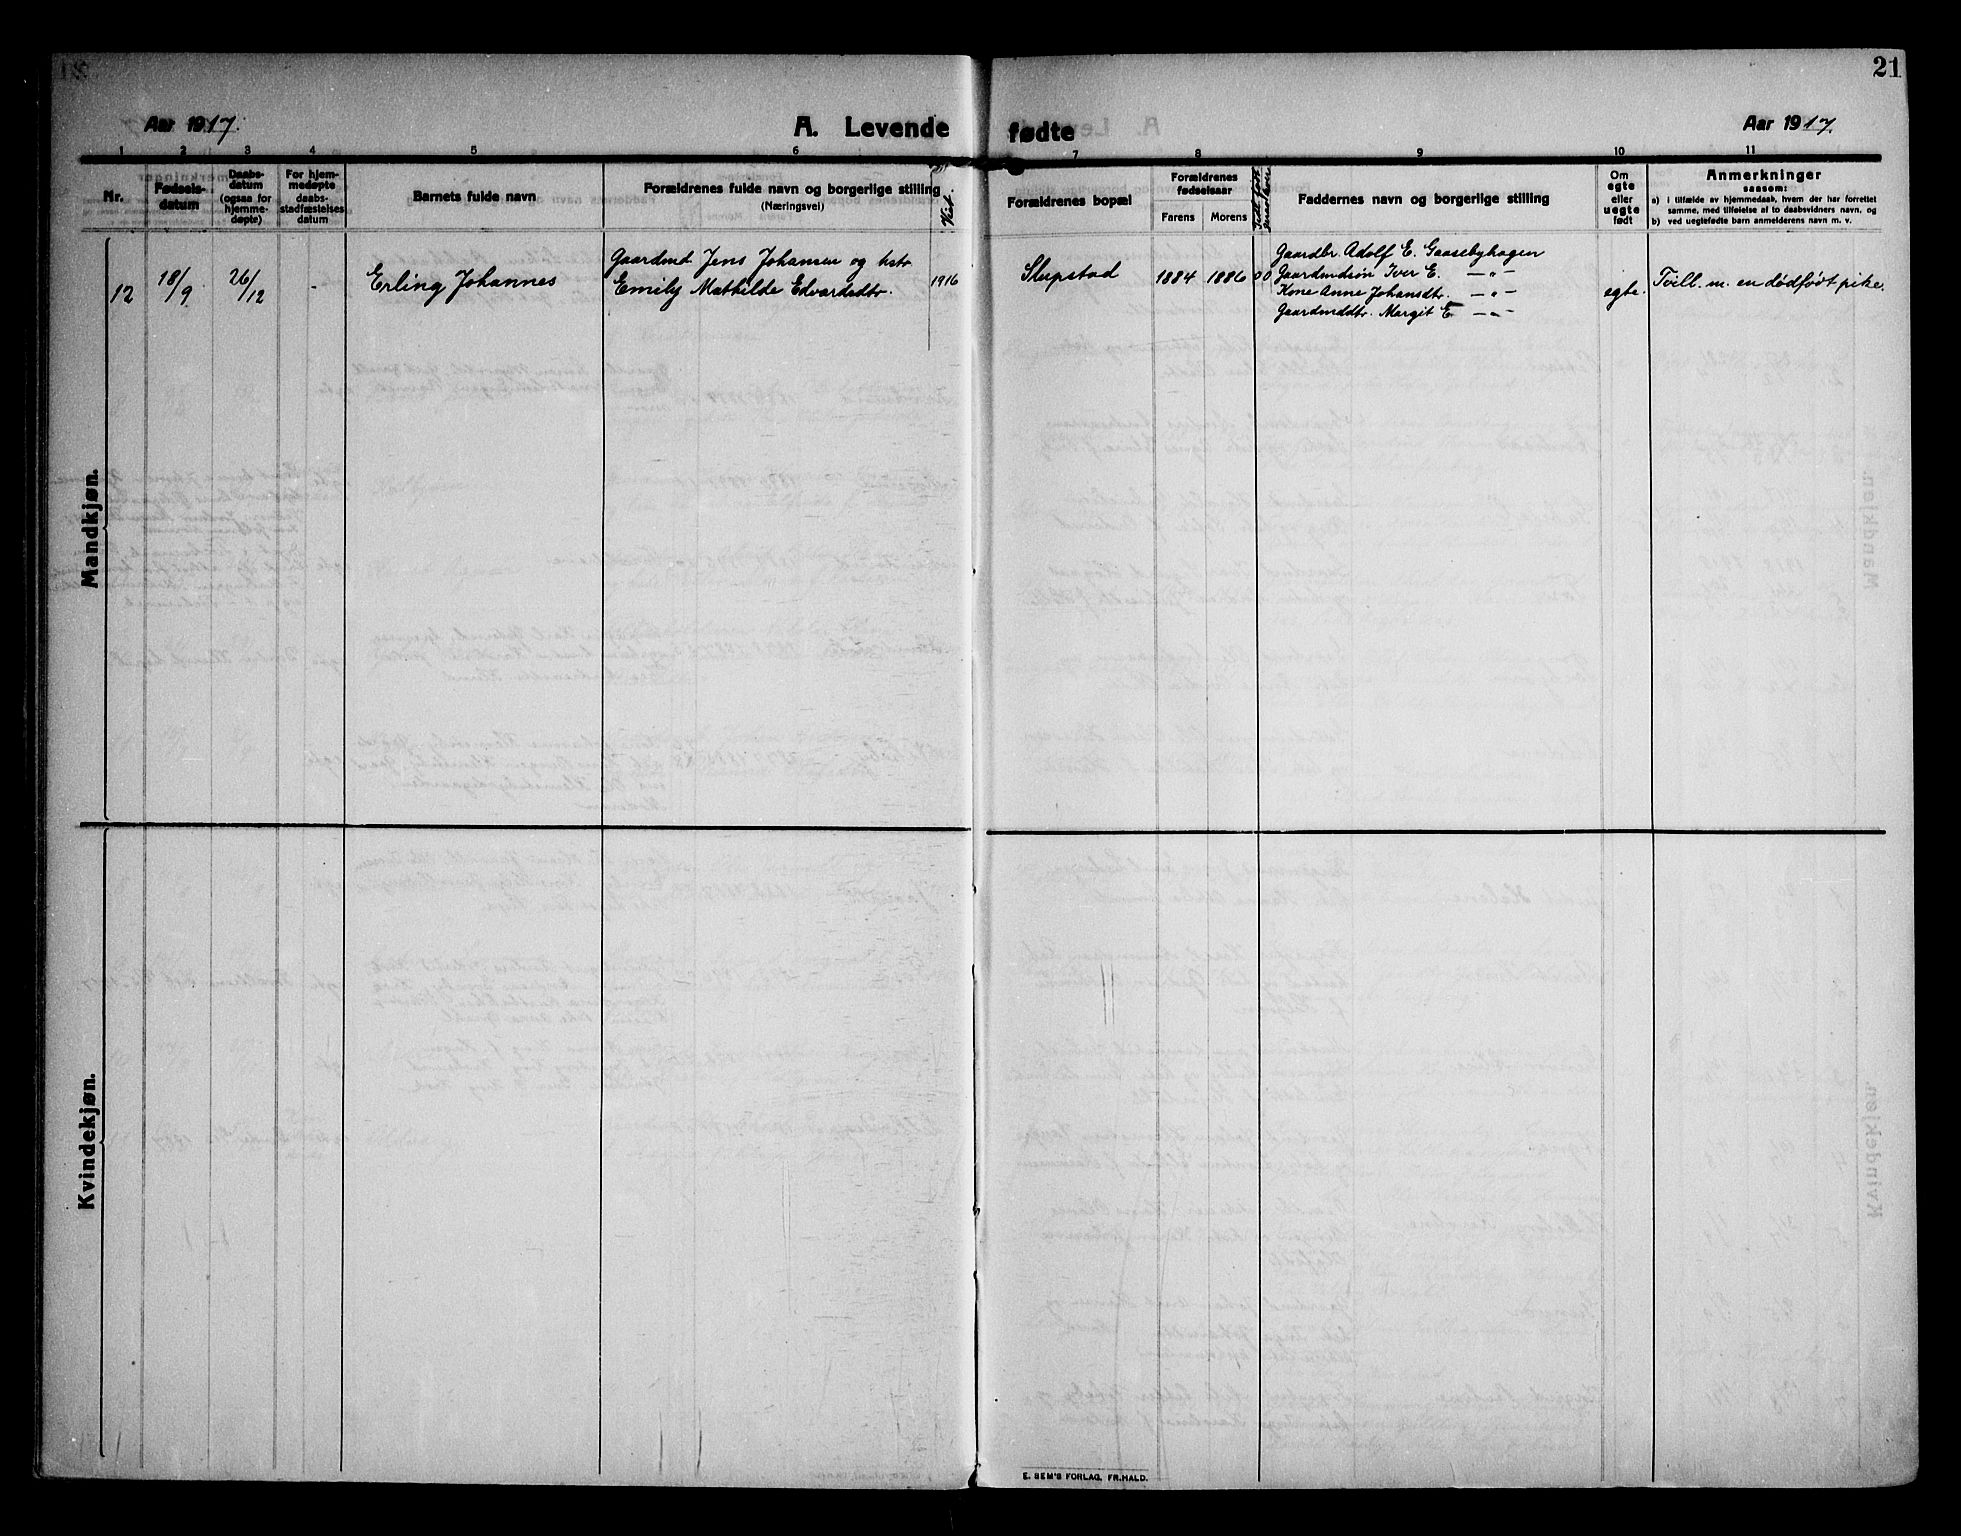 21
Aar 1917.
A. Levende
fødte
Aar 1917.
1 2 3 4 5 6 7 8 9 10 11
Nr.
Fødsels-
datum
Daabs-
datum
(ogsaa for
hjemme-
døpte)
For hjem-
medøpte
daabs-
stadfæstelses
datum
Barnets fulde navn
Forældrenes fulde navn og borgerlige stilling
(Næringsvei)
Viet.
Forældrenes bopæl
Forældrenes
fødselsaar
Farens Morens
Faddernes navn og borgerlige stilling
Om
egte
eller
uegte
født
Anmerkninger
saasom:
a) i tilfælde av hjemmedaab, hvem der har forrettet
samme, med tilføielse af to daabsvidners navn, og
b) ved uegtefødte barn anmelderens navn m. v.
Mandkjøn.
12
18/9
26/12
-
Erling Johannes
Gaardmd Jens Johansen og hstr
Emily Mathilde Edvardsdtr.
1916
Slupstad
1884 1886 00
Gaardbr. Adolf E. Gaasebyhagen
Gaardmdsøn Iver E. — „ —
Kone Anne Johansdtr. — „ —
Gaardmddtr. Margit E. — „ —
egte.
Tvill. m. en dødfødt pike.
Kvindekjøn.
E. SEM'S FORLAG, FR.HALD.